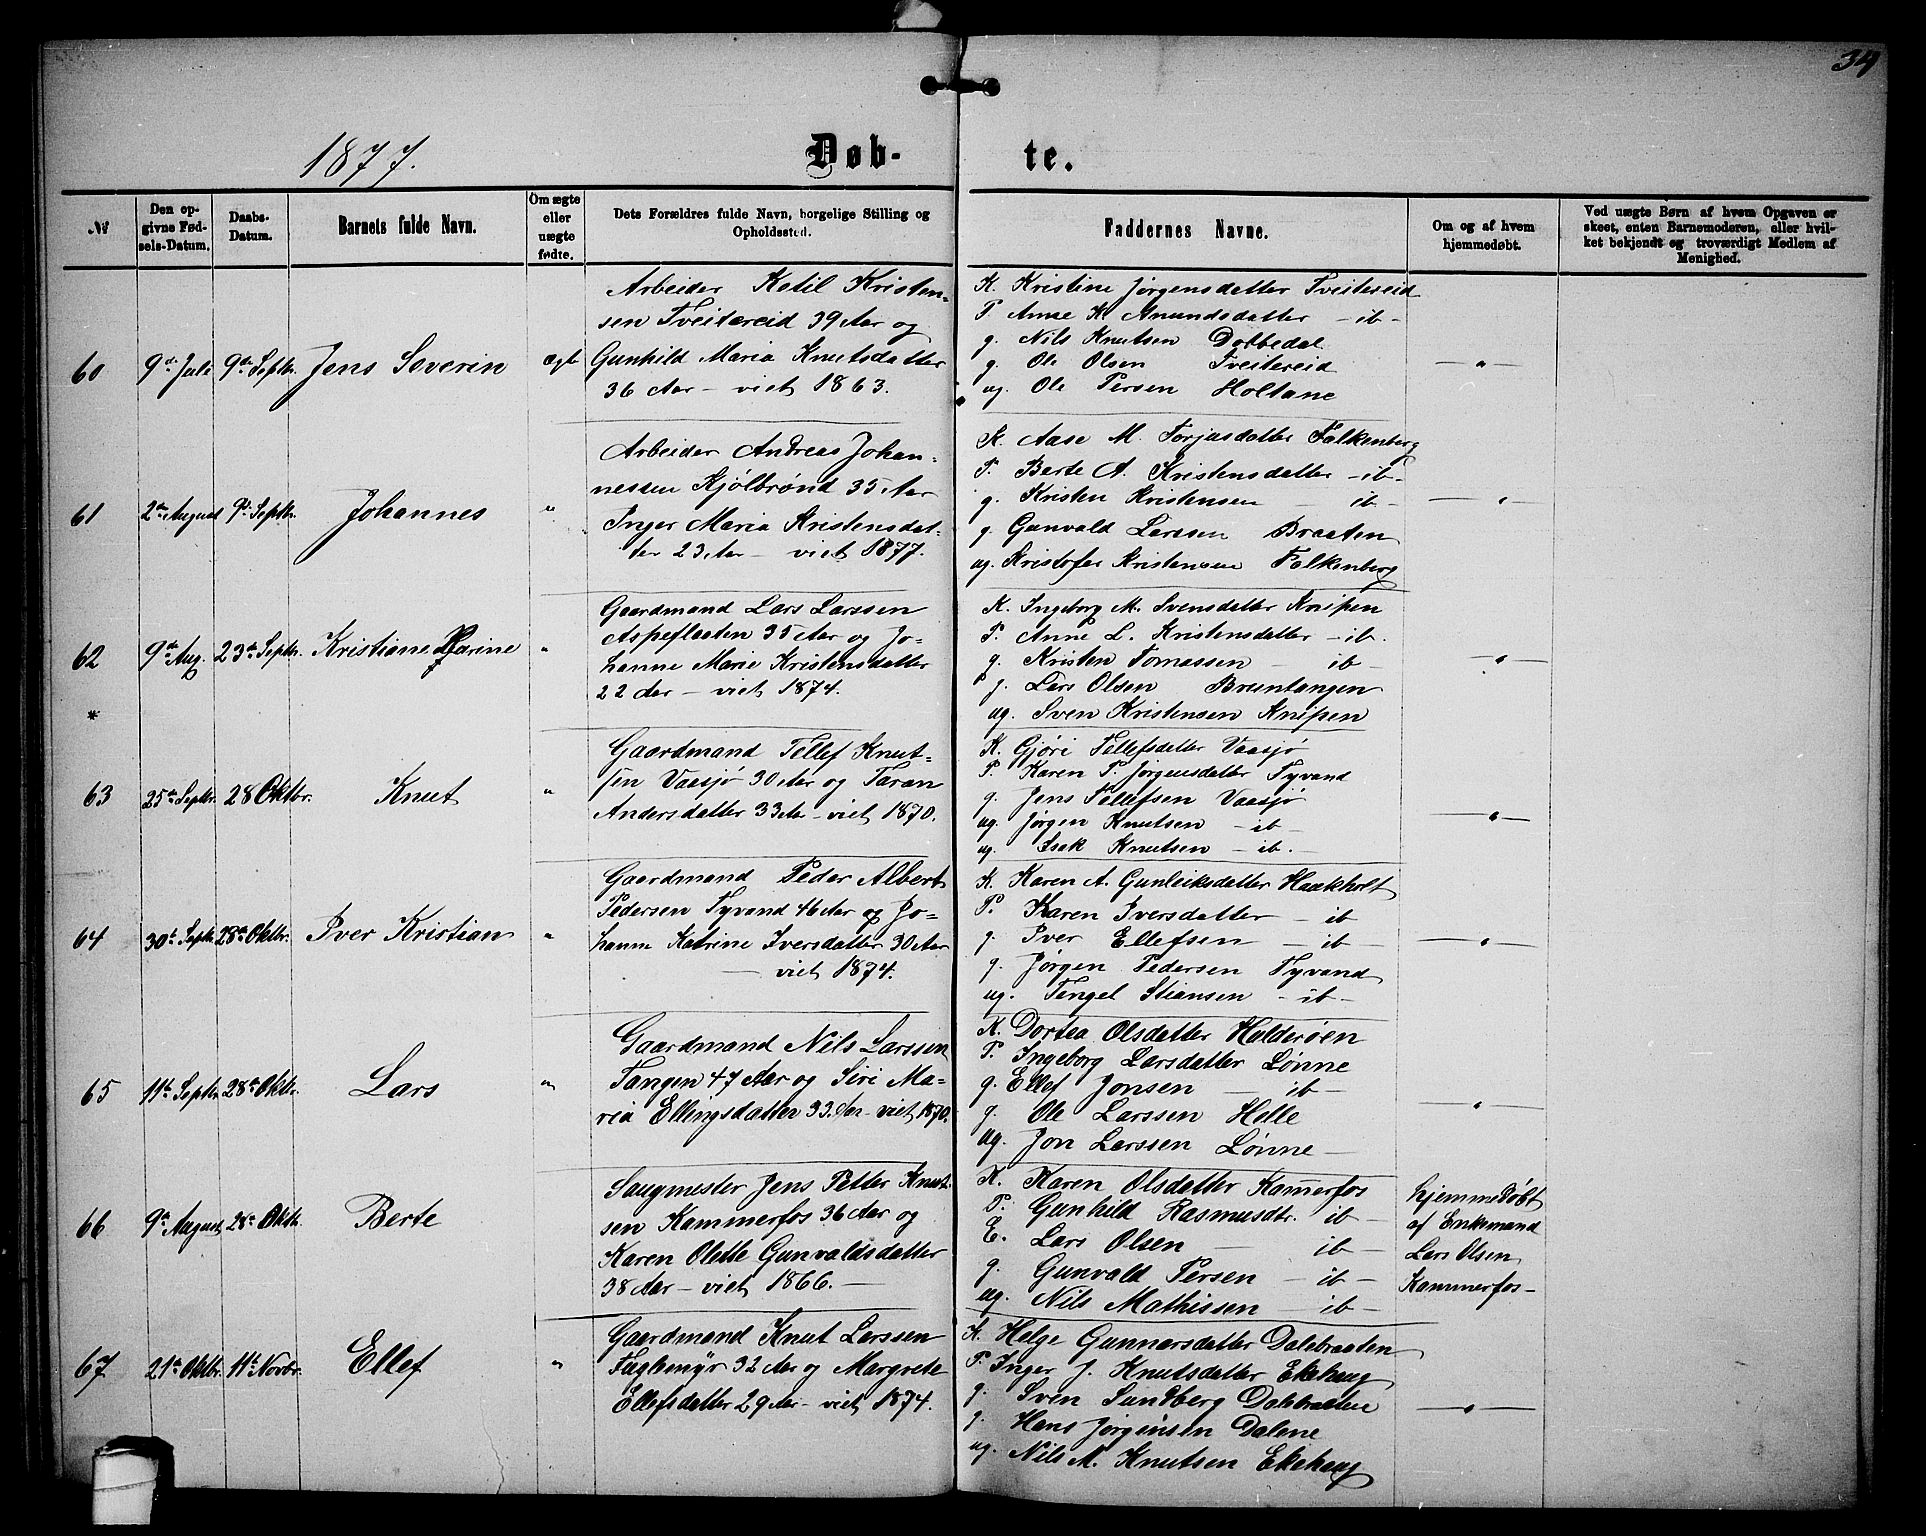 34
1877.
Døb-
te.
№
Den op-
givne Fød-
sels-Datum.
Daabs-
Datum.
Barnets fulde Navn.
Om ægte
eller
uægte
fødte.
Dets Forældres fulde Navn, borgelige Stilling og
Opholdssted.
Faddernes Navne.
Om og af hvem
hjemmedøbt.
Ved uægte Børn af hvem Opgaven er
skeet, enten Barnemoderen, eller hvil-
ket bekjendt og troværdigt Medlem af
Menighed.
60
9de Juli
9de Septbr.
Jens Severin
ægte
Arbeider Ketil Kristen-
sen Tveitereid 39 Aar og
Gunhild Maria Knutsdatter
36 Aar – viet 1863.
K. Kristine Jørgensdatter Tveitereid
P. Anne K. Anundsdatter – ib –
g. Nils Knutsen Dobbedal
g. Ole Olsen Tveitereid
ug. Ole Persen Holtane
— " —
61
2den August
9de Septbr.
Johannes
"
Arbeider Andreas Johan-
nessen Kjølbrønd 35 Aar
Inger Maria Kristensdat-
ter 23 Aar – viet 1877.
K. Aase M. Torjusdatter Falkenberg
P. Berte A. Kristensdatter – ib –
g. Kristen Kristensen – ib –
g. Gunvald Larssen Braaten
ug. Kristofer Kristensen Falkenberg
— " —
62
9de Aug.
23de Septbr.
Kristiane Karine
"
Gaardmand Lars Larssen
Aspeflaaten 35 Aar og Jo-
hanne Marie Kristensdatter
22 Aar – viet 1874.
K. Ingeborg M. Svensdatter Knipen
P. Anne L. Kristensdatter – ib.
g. Kristen Tomassen – ib –
g. Lars Olsen Bruntangen
ug. Sven Kristensen Knipen
— " —
*
63
25de Septbr.
28 Oktbr.
Knut
"
Gaardmand Tellef Knut-
sen Vaasjø 30 Aar og Taran
Andersdatter 33 Aar – viet 1870.
K. Gjøri Tellefsdatter Vaasjø
P. Karen T. Jørgensdatter Tyvand
g. Jens Tellefsen Vaasjø
ug. Jørgen Knutsen – ib –
ug. Isak Knutsen – ib.
— " —
64
30te Septbr.
28de Oktbr.
Iver Kristian
"
Gaardmand Peder Albert
Pedersen Tyvand 46 Aar og Jo-
hanne Katrine Iversdatter 30 Aar
— viet 1874.
K. Karen A. Gunleiksdatter Haakholt
P. Karen Iversdatter – ib
g. Iver Ellefsen – ib
g. Jørgen Pedersen Tyvand
ug. Tengel Stiansen – ib –
— " —
65
11te Septbr.
28de Oktbr.
Lars
"
Gaardmand Nils Larssen
Tangen 47 Aar og Siri Ma-
ria Ellingsdatter 33 Aar – viet 1870.
K. Dortea Olsdatter Halderøen
P. Ingeborg Larsdatter Lønne
g. Ellef Jonsen – ib –
g. Ole Larssen Helle
ug. Jon Larssen Lønne –
— " —
66
9de August
28de Oktbr.
Berte
Saugmester Jens Petter Knut-
sen Kammerfos 36 Aar og
Karen Olette Gunvaldsdatter
38 Aar – viet 1866. –
K. Karen Olsdatter Kammerfos
P. Gunhild Rasmusdtr. ib –
E. Lars Olsen – ib –
g. Gunvald Persen – ib –
ug. Nils Mathissen – ib –
hjemmedøbt
af Enkemand
Lars Olsen
Kammerfos –
67
21de Oktbr.
11te Novbr.
Ellef
"
Gaardmand Knut Larssen
Fuglemyr 32 Aar og Margrete
Ellefsdatter 29 Aar – viet 1874.
K. Helge Gunnarsdatter Dalebraaten
P. Inger J. Knutsdatter Ekehaug
g. Sven Sundberg Dalebraaten
g. Hans Jørgensen Dalene
ug. Nils M. Knutsen Ekehaug
— " —